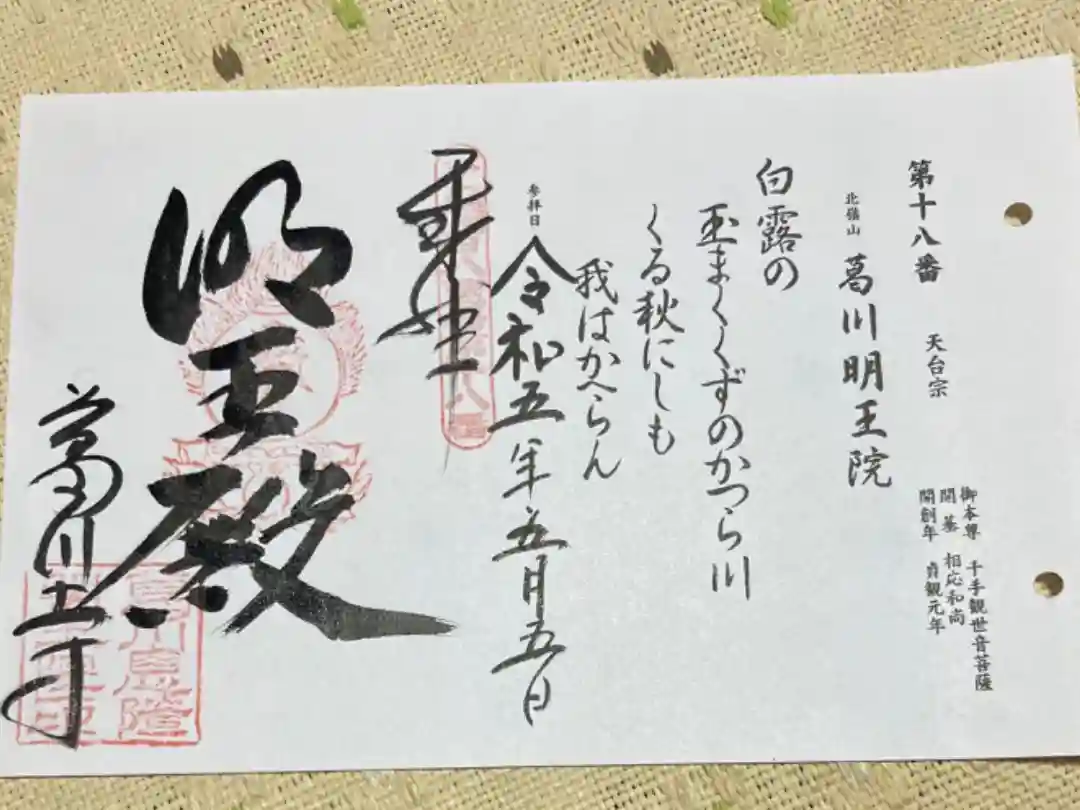 第十八番 天台宗
御本尊 千手観世音菩薩
開基 相応和尚
開創年 貞観元年
北嶺山 葛川明王院
白露の
玉まくくずのかつら川
くる秋にしも
我はかへらん
参拝日 令和五年五月五日
奉拝
明王殿
葛川寺